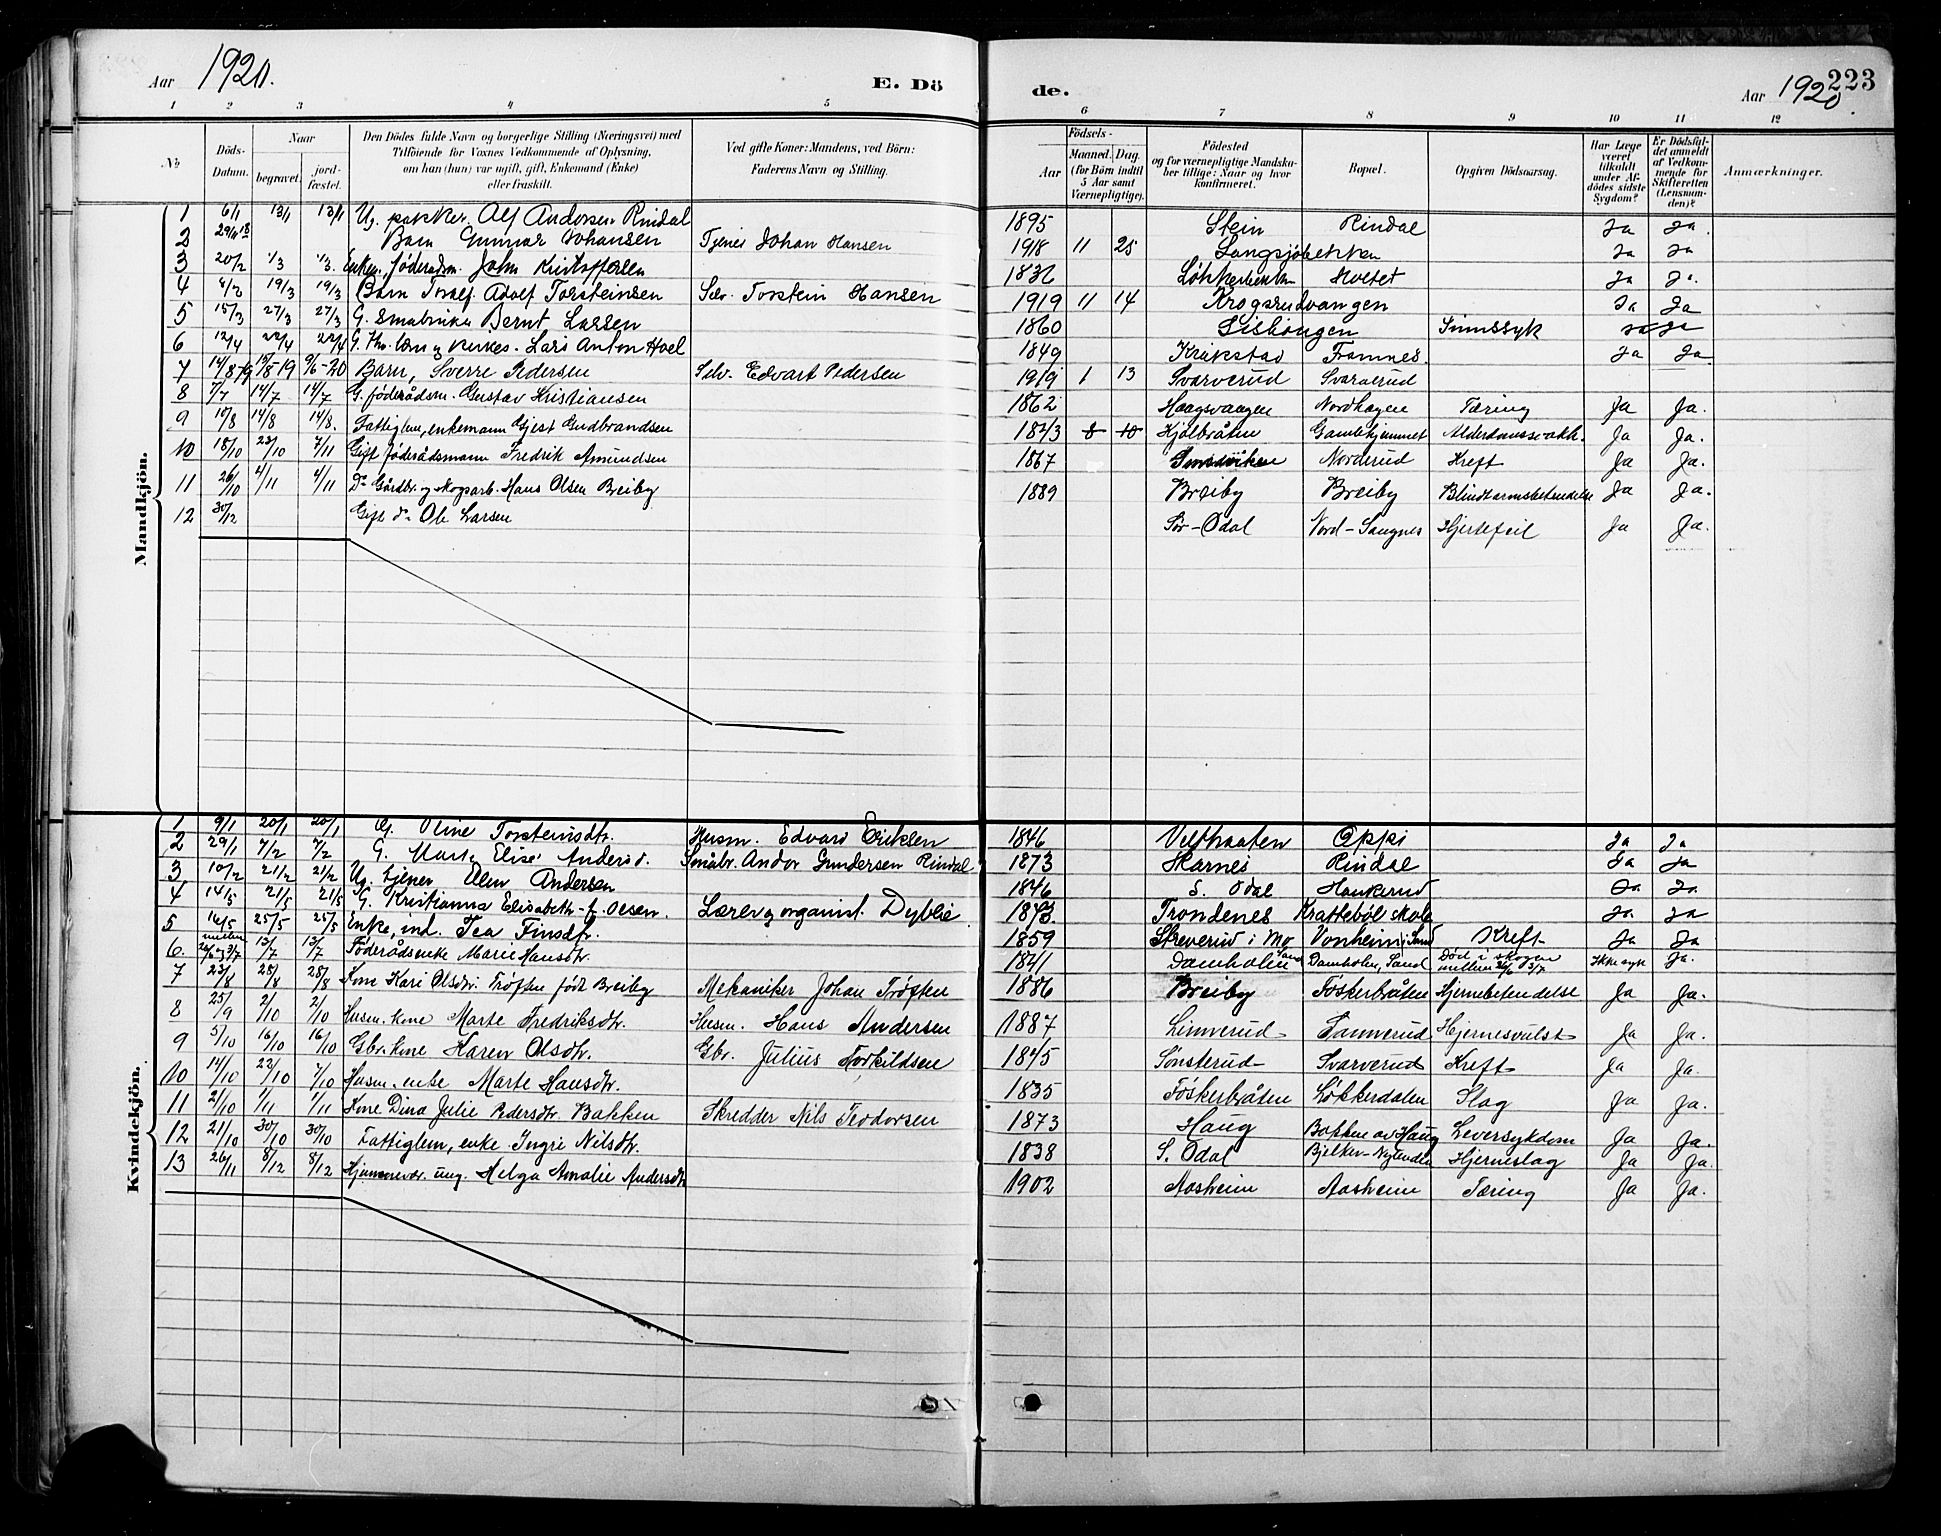 Aar 1920. E. Dö de. Aar 1920. 223
1 2 3 4 5 6 7 8 9 10 11 12
No Döds-Datum. Naar begravet. jordfæstet. Den Dödes fulde Navn og borgerlige Stilling (Næringsvei) med Tilföiende for Voxnes Vedkommende af Oplysning, om han (hun) var ugift, gift, Enkemand (Enke) eller fraskilt. Ved gifte Koner: Mandens, ved Börn: Faderens Navn og Stilling. Födsels- Aar Maaned. Dag. (for Börn indtil 5 Aar samt Værnepligtige). Födested og for værnepligtige Mandskaber tillige: Naar og hvor konfirmeret. Bopæl. Opgiven Dödsaarsag. Har Læge været tilkaldt under Afdödes sidste Sygdom? Er Dödsfaldet anmeldt af Vedkommende for Skifteretten (Lensmanden)? Anmærkninger.
Mandkjön.
1 6/1 13/1 13/1 Ug. pakker Alf Andersen Rindal 1895 Stein Rindal Ja Ja.
2 29/11 18 Barn Gunnar Johansen Tjener Johan Hansen 1918 11 25 Langsjøbekken Ja Ja
3 20/2 1/3 1/3. Enkem. føderådsm. John Kristoffersen Moltet Ja Ja.
4 19/3 19/3 Barn Toralf Adolf Torsteinsen Selv. Torstein Hansen 1919 11 14 Krogsrudvangen Ja Ja
5 15/3 27/3 27/3 G. Småbruker Bernt Larsen 1860 Sinnssyk Ja Ja
6 12/4 22/4 22/4 Lars Anton Hoel 1849 Kråkstad Framnes. Ja Ja
7 14/8 19 19/8-19 9/6-20 Barn, Sverre Pedersen Selv. Edvart Pedersen 1919 1 13 Svarverud Svarverud
8 7/7 14/7 14/7 G. føderådsm. Gustav Kristiansen 1862 Haagsvaagen Nordhagen Tæring Ja Ja.
9 10/8 14/8 14/8. Fattiglem, enkemann Gjest Gudbrandsen 1843 8 10 Hjølbråten Gamlehjemmet Ja Ja.
10 18/10 23/10 7/11 Gift føderådsmann Fredrik Amundsen 1867 Norderud Kreft Ja Ja.
11 26/10 4/11 4/11 Do Gårdbr. og skogsarb. Hans Olsen Breiby 1889 Breiby Breiby Blindtarmsbetendelse Ja Ja.
12 30/12 Gift do Ole Larsen Sør-Odal Nord-Sangnes Hjertefeil Ja Ja.
Kvindekjön.
1 9/1 20/1 20/1 G. Oline Torsteinsdtr. Husm. Edvard Eriksen 1846 Velthaaten Oppi Ja Ja
2 29/1 7/2 7/2 G. Marte Elise Andersd. Småbr. Andor Gundersen Rindal 1873 Skarnes Rindal Ja Ja
3 10/2 21/2 21/2 Ug. tjener Elen Andersen 1846 S. Odal Haukerud Ja Ja
4 14/5 21/5 21/5 G. Kristianna Elisabeth f. Olsen. Lærer og organist. Dyblie 1873. Trondenes Krattebøl skole Ja Ja
5 16/5 25/5 25/5 Enke, ind. Tea Finsdtr. 1859 Streverud i Mo Vonheim i Sand Kreft Ja Ja
6. mellem 26/6 og 3/7 13/7 13/7 Føderådsenke Marie Hansdtr. 1841 Damholen Sand Damholen, Sand Død i skogen mellem 26/6 og 3/7 Ikke syk Ja.
7 23/8 28/8 28/8 Kone Kari Olsdtr. Trøften født Breiby Mekaniker Johan Trøften 1886 Breiby Føskerbråten Hjernebetendelse Ja Ja.
8 25/9 2/10 2/10 Husm. kone Marte Fredriksdtr. Husm. Hans Andersen 1887 Linnerud Hjernesvulst Ja Ja.
9 5/10 16/10 16/10 Gbr. kone Karen Olsdtr. Gbr. Julius Torkildsen 1845 Sønsterud Svarverud Kreft Ja Ja.
10 14/10 23/10 7/10 Husm. enke Marte Hansdtr. 1835 Føskerbråten Løkkerdalen Slag Ja Ja.
11 2/10 1/11 1/11 Kone Dina Julie Pedersdtr. Bakken Skredder Nils Teodorsen 1873 Haug Bakken av Haug Leversykdom Ja Ja.
12 21/10 30/10 30/10 Fattiglem, enke Ingri Nilsdtr. 1838 S. Odal Hjerneslag Ja Ja.
13 26/11 8/12 8/12 Hjemmevær. ung. Helga Amalie Andersdtr 1902 Aasheim Aasheim Tæring Ja Ja.